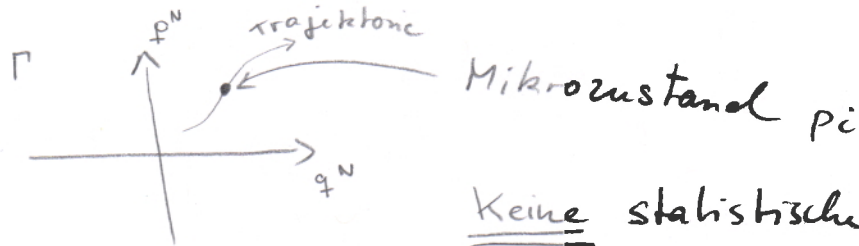 p^N
Trajektorie
Γ
Mikrozustand pi
q^N
Keine statistische